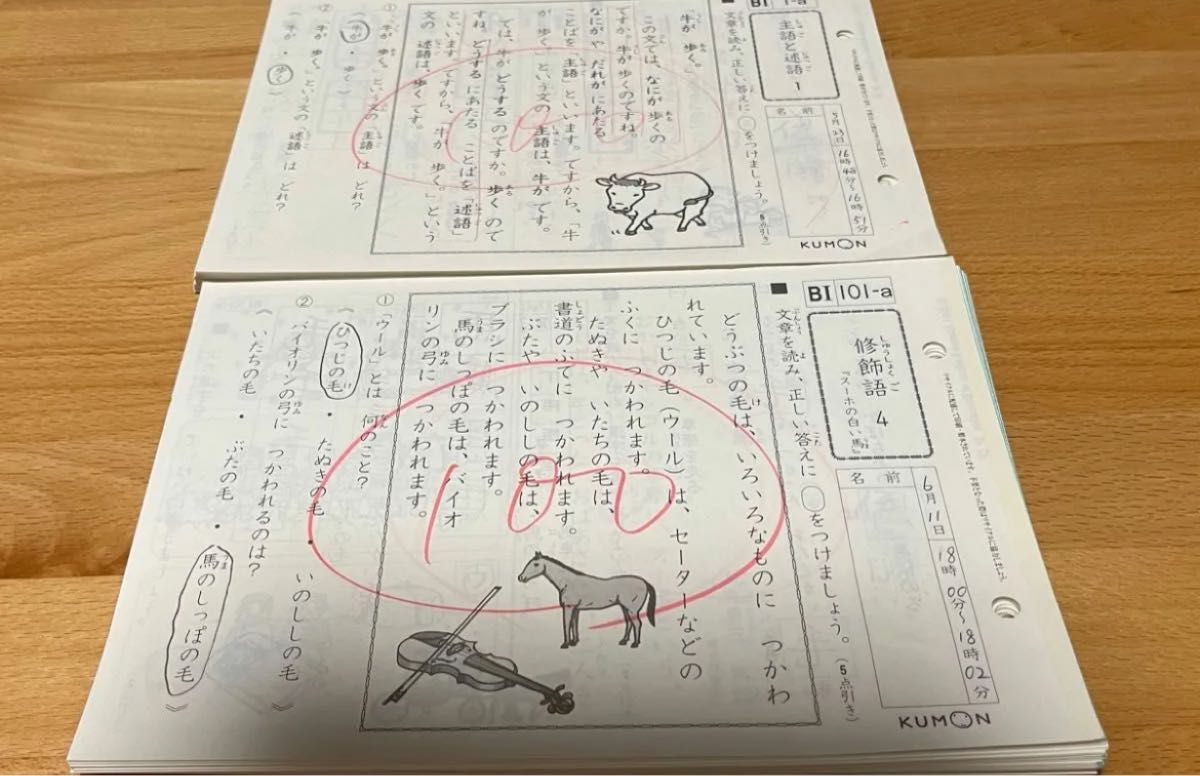 BI 1-a
主語と述語 1
名前
5月23日16時48分〜16時51分
KUMON
文章を読み、正しい答えに○をつけましょう。(5点引き)
「牛が 歩く。」
この文では、なにが歩くの
ですか。牛が歩くのですね。
なにがや だれが にあたる
ことばを「主語」といいます。ですから、「牛
が 歩く。」という文の 主語は、牛がです。
では、牛が どうする のですか。歩くので
すね。どうするにあたる ことばを「述語」
といいます。ですから、「牛が 歩く。」という
文の 述語は 歩くです。
100
① 「牛が 歩く。」という文の「主語」は どれ?
( 牛が ・ 歩く )
② 「牛が 歩く。」という文の「述語」は どれ?
( 牛が ・ 歩く )
BI 101-a
修飾語 4
しゅうしょくご
『スーホの白い馬』
名前
6月11日18時00分〜18時02分
KUMON
文章を読み、正しい答えに○をつけましょう。(5点引き)
どうぶつの毛は、いろいろなものに つかわ
れています。
ひつじの毛(ウール)は、セーターなどの
ふくに つかわれます。
たぬきや いたちの毛は、
書道のふでに つかわれます。
ぶたや いのししの毛は、
ブラシに つかわれます。
馬のしっぽの毛は、バイオ
リンの弓に つかわれます。
100
① 「ウール」とは 何のこと?
( ひつじの毛 ・ たぬきの毛 ・ いのししの毛 )
② バイオリンの弓に つかわれるのは?
( いたちの毛 ・ ぶたの毛 ・ 馬のしっぽの毛 )